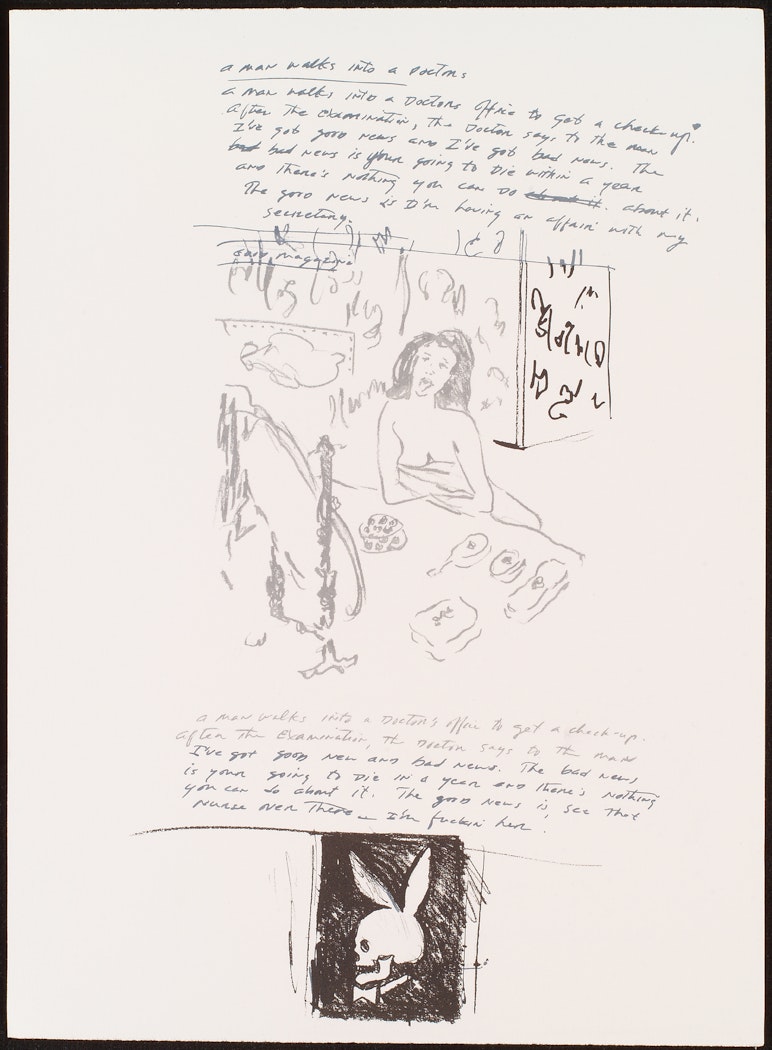 a man walks into a Doctors
a man walks into a Doctors Office to get a check up.
After the examination, the Doctor says to the man
I've got good news and I've got bad news. The
bad bad news is your going to die within a year
and there's nothing you can do about it. about it.
The good news is I'm having an affair with my
secretary.
magazine
a man walks into a Doctor's office to get a check-up.
after the Examination, the Doctor says to the man
I've got good new and bad news. The bad news
is your going to die in a year and there's nothing
you can do about it. The good news is, see that
nurse over There — I'm fuckin her.